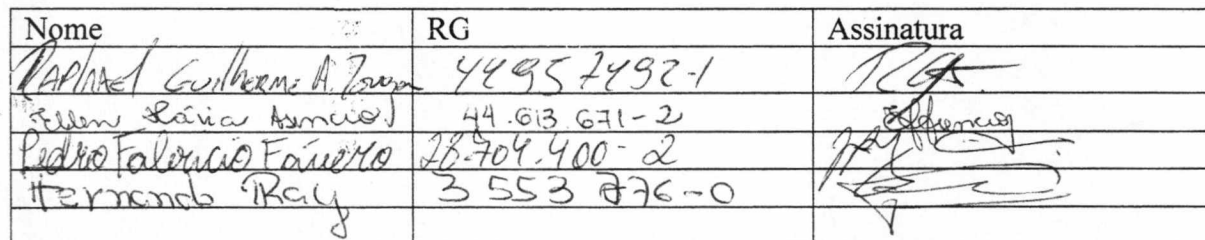 Nome RG Assinatura
Raphael Guilherme A. 44957492-1
Ellen Flávia Asencio 44.613.671-2
Pedro Fabricio 28.704.400-2
Hernando Ray 3 553 776-0